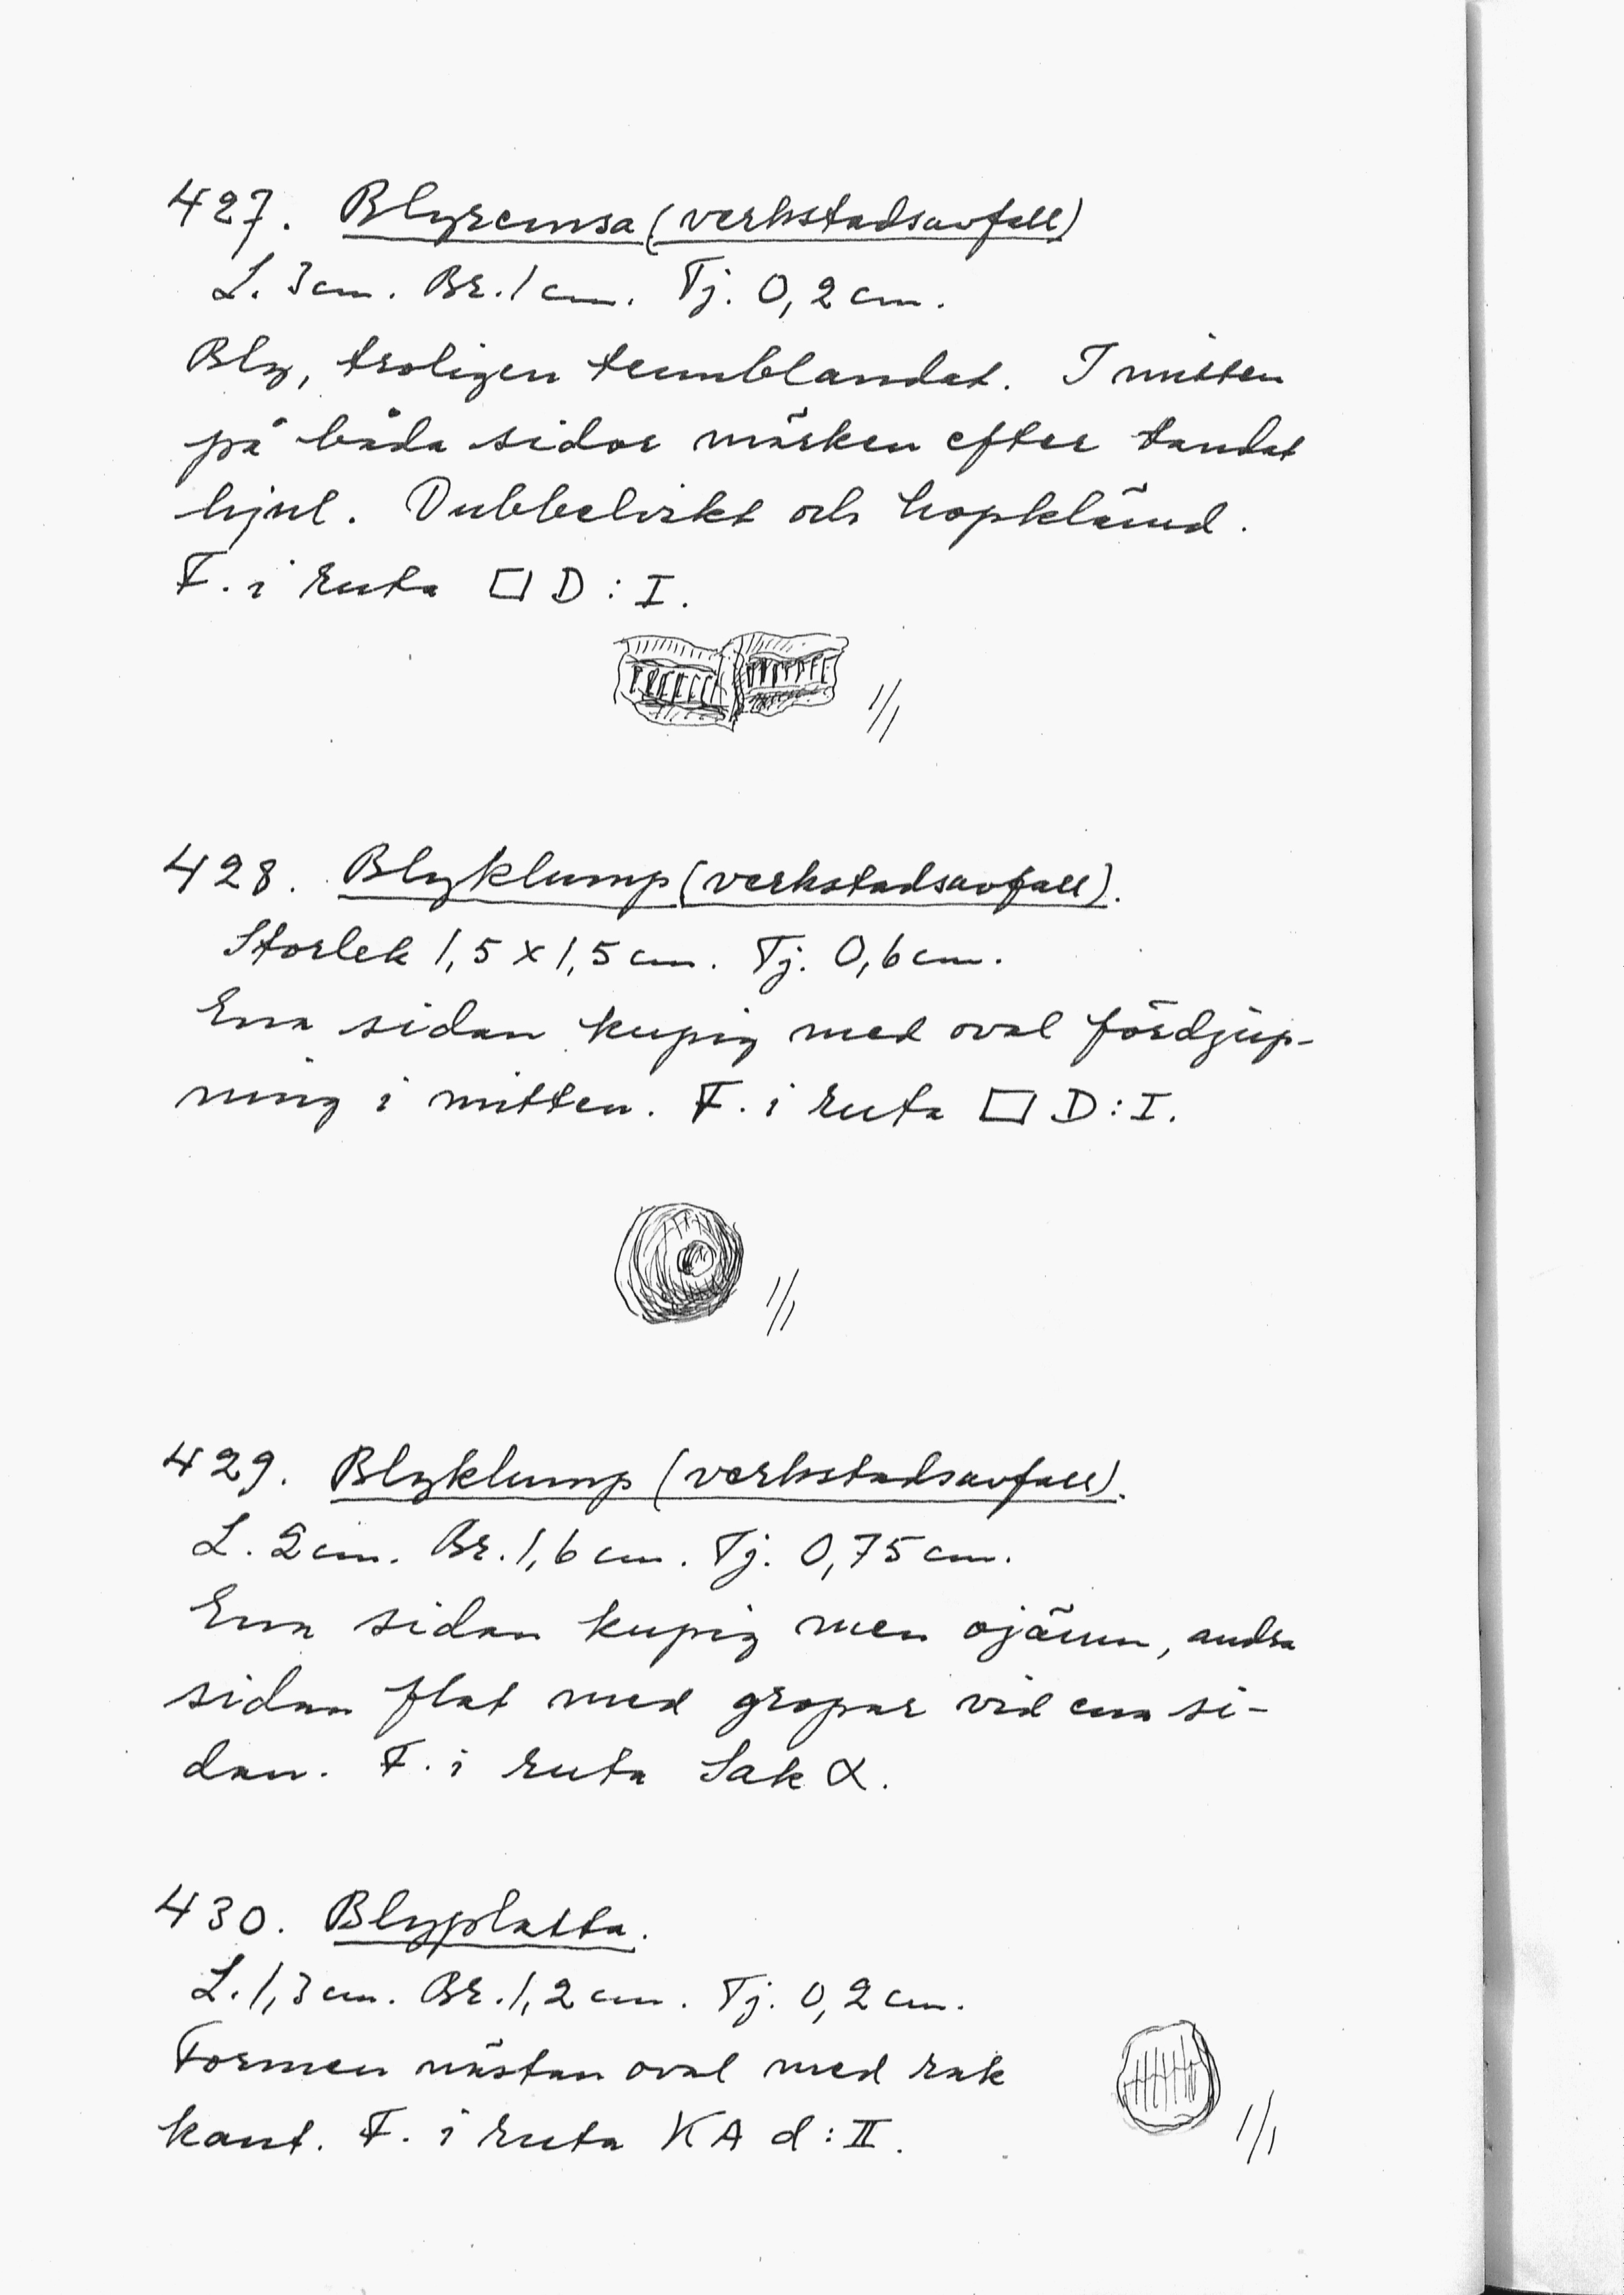 427. Blyremsa (verkstadsavfall)
L. 3 cm. Br. 1 cm. Tj. 0,2 cm.
Bly, troligen tennblandat. I mitten
på båda sidor märken efter tandat
hjul. Dubbelvikt och hopklämd.
F. i ruta □ D : I.
1/1
428. Blyklump (verkstadsavfall).
Storlek 1,5 x 1,5 cm. Tj. 0,6 cm.
Ena sidan kupig med oval fördjup-
ning i mitten. F. i ruta □ D : I.
1/1
429. Blyklump (verkstadsavfall).
L. 2 cm. Br. 1,6 cm. Tj. 0,75 cm.
Ena sidan kupig men ojämn, andra
sidan flat med gropar vid ena si-
dan. F. i ruta Sak α.
430. Blyplatta.
L. 1,3 cm. Br. 1,2 cm. Tj. 0,2 cm.
Formen nästan oval med rak
kant. F. i ruta KA d : II.
1/1